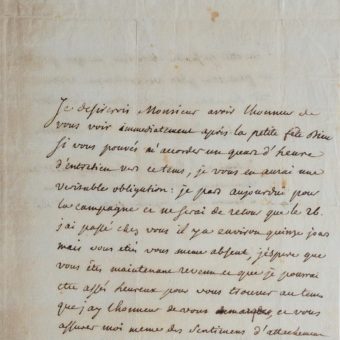 Je desirerois Monsieur avoir lhonneur de
vous voir immediatement après la petite fête Dieu
Si vous pouvés m'accorder un quart d'heure
d'entretien vers ce tems, je vous en aurai une
veritable obligation : je pars aujourdhui pour
la campagne ce ne serai de retour que le 26.
j'ai passé chés vous il y a environ quinze jours
mais vous etiés vous meme absent, j'espere que
vous êtes maintenant revenu et que je pourrai
etre assés heureux pour vous trouver au tems
que j'ay lhonneur de vous ce vous
assurer moi meme des Sentimens d'attachement